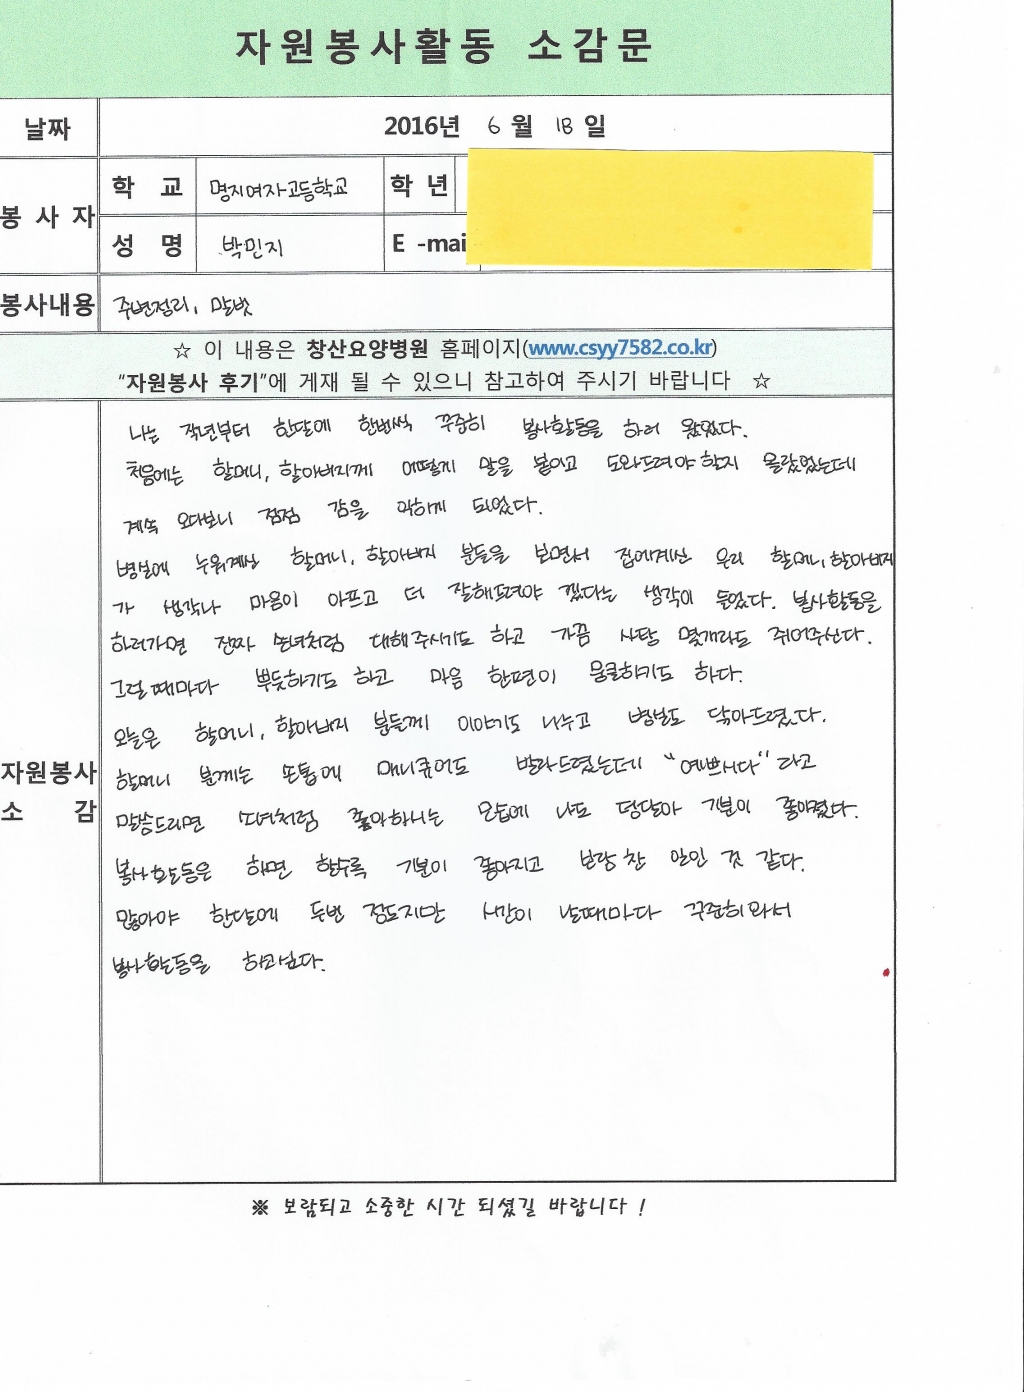 자원봉사활동 소감문
날짜 2016년 6월 18일
봉사자 학교 명지여자고등학교 학년
성명 박민지 E -mai
봉사내용 주변정리, 말벗
☆ 이 내용은 창산요양병원 홈페이지(www.csyy7582.co.kr)
“자원봉사 후기”에 게재 될 수 있으니 참고하여 주시기 바랍니다 ☆
자원봉사 소감
나는 작년부터 한달에 한번씩 꾸준히 봉사활동을 하러 왔었다.
처음에는 할머니, 할아버지께 어떻게 말을 붙이고 도와드려야 할지 몰랐었는데
계속 오다보니 점점 감을 익하게 되었다.
병실에 누워계신 할머니, 할아버지 분들을 보면서 집에계신 우리 할머니, 할아버지
가 생각나 마음이 아프고 더 잘해드려야 겠다는 생각이 들었다. 봉사활동을
하러가면 진짜 손녀처럼 대해주시기도 하고 가끔 사탕 몇개라도 쥐어주신다.
그럴때마다 뿌듯하기도 하고 마음 한편이 뭉클하기도 하다.
오늘은 할머니, 할아버지 분들께 이야기도 나누고 병실도 닦아드렸다.
할머니 분께는 손톱에 매니큐어도 발라드렸는데 "예쁘시다" 라고
말씀드리면 소녀처럼 좋아하시는 모습에 나도 덩달아 기분이 좋아졌다.
봉사활동은 하면 할수록 기분이 좋아지고 보람찬 일인 것 같다.
많아야 한달에 두번 정도지만 시간이 날때마다 꾸준히와서
봉사활동을 하고싶다.
※ 보람되고 소중한 시간 되셨길 바랍니다 !